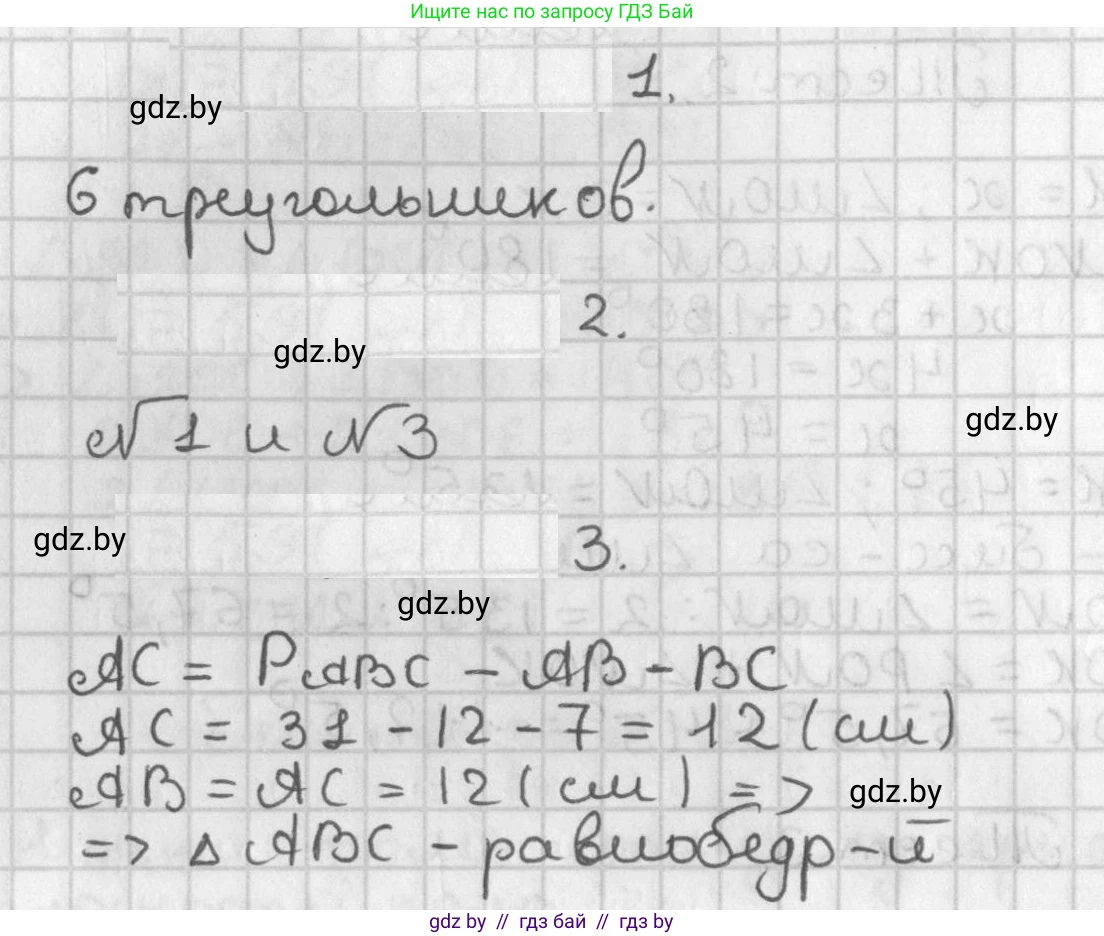 Ищите нас по запросу ГДЗ Бай
1.
gdz.by
6 треугольников.
2.
gdz.by
№1 и №3
gdz.by
3.
gdz.by
gdz.by
AC = PABC - AB - BC
AC = 31 - 12 - 7 = 12 (см)
AB = AC = 12 (см) =>
gdz.by
=> Δ ABC - равнобедр-й
gdz.by // гдз бай // гдз by